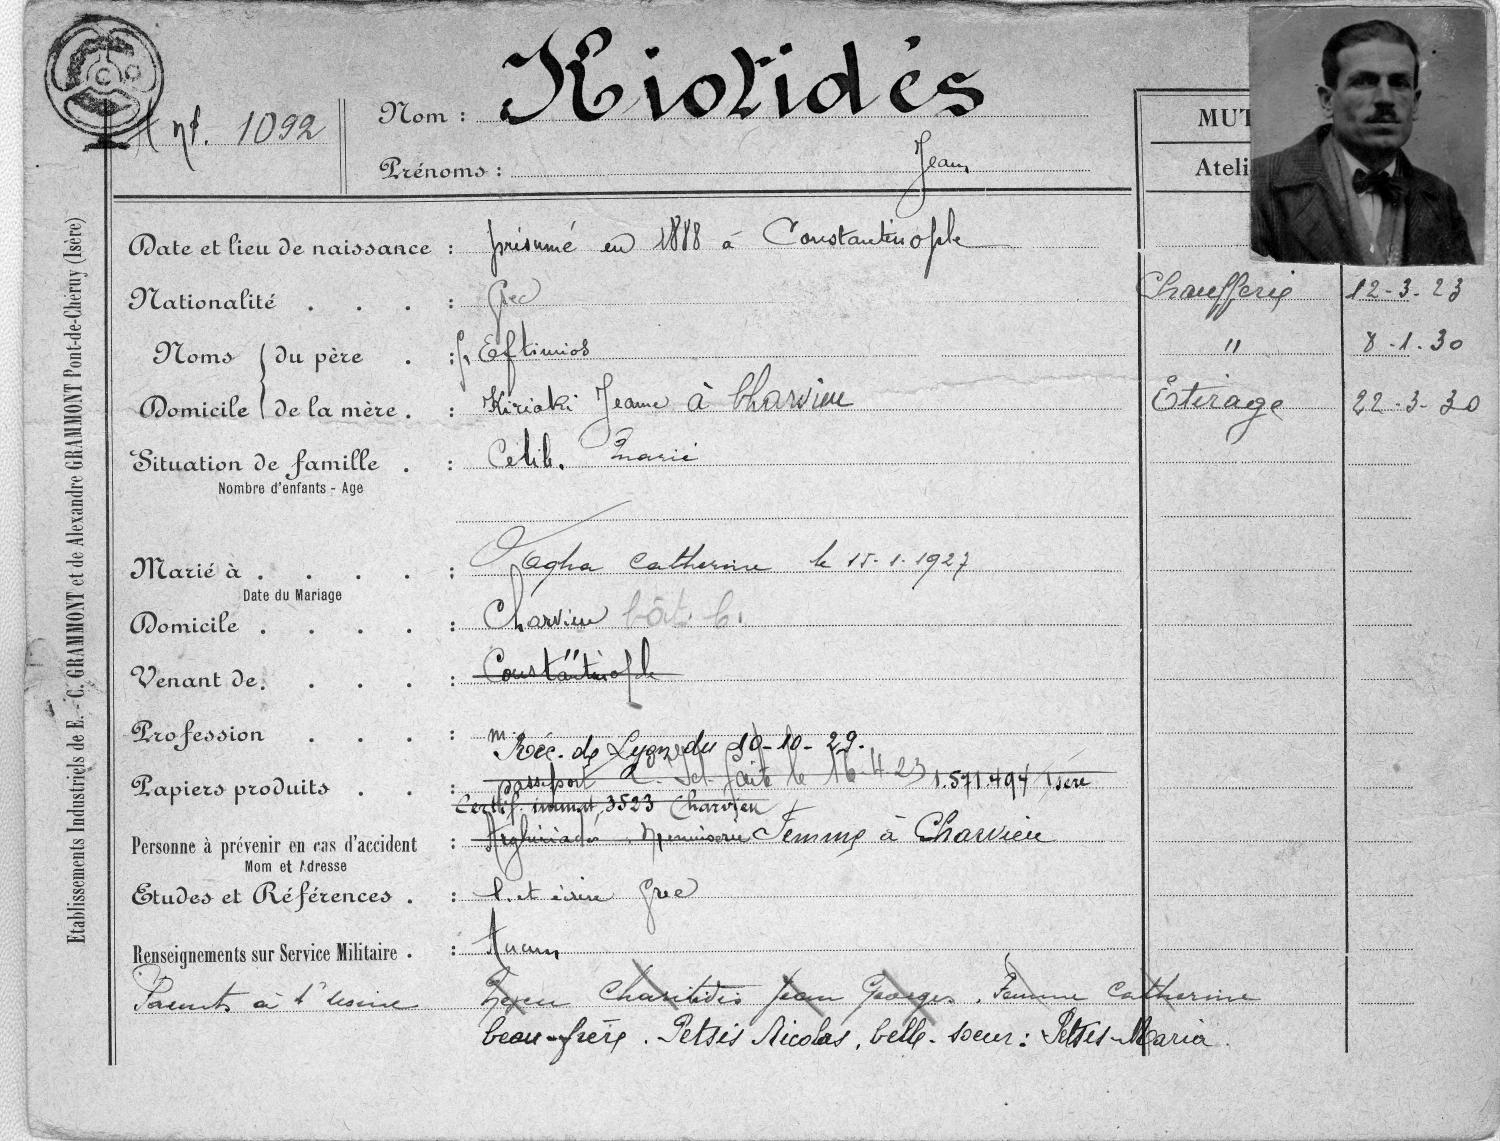 nf. 1092
Nom : Kiotidès
Prénoms : Jean
MUT
Ateli
Date et lieu de naissance : présumé en 1888 à Constantinople
Nationalité . . . : Grec
Chaufferie 12-3-23
Noms du père . : Eftimios
" 8-1-30
Domicile de la mère . : Kiriaki Jeanne à Charvieu
Etirage 22-3-30
Situation de famille . : Célib. marié
Nombre d'enfants - Age
Marié à . . . . : Vagha Catherine le 15-1-1927
Date du Mariage
Domicile . . . . : Charvieu bât. b.
Venant de. . . . : Constantinople "
Profession . . . : m.
Réc. de Lyon du 10-10-29.
Papiers produits . . : passeport fait le 16-4-23 1.571.494 Isère
Certif. immat. 3523 Charvieu
Personne à prévenir en cas d'accident : Menuiserie Femme à Charvieu
Nom et Adresse
Etudes et Références . : l. et écrire Grec
Renseignements sur Service Militaire . : Aucun
Parents à l'usine Charitidis Jean Georges. Femme Catherine
beau-frère. Petsis Nicolas, belle-soeur : Petsis Maria.
Etablissements Industriels de E.-C. GRAMMONT et de Alexandre GRAMMONT Pont-de-Chéruy (Isère)